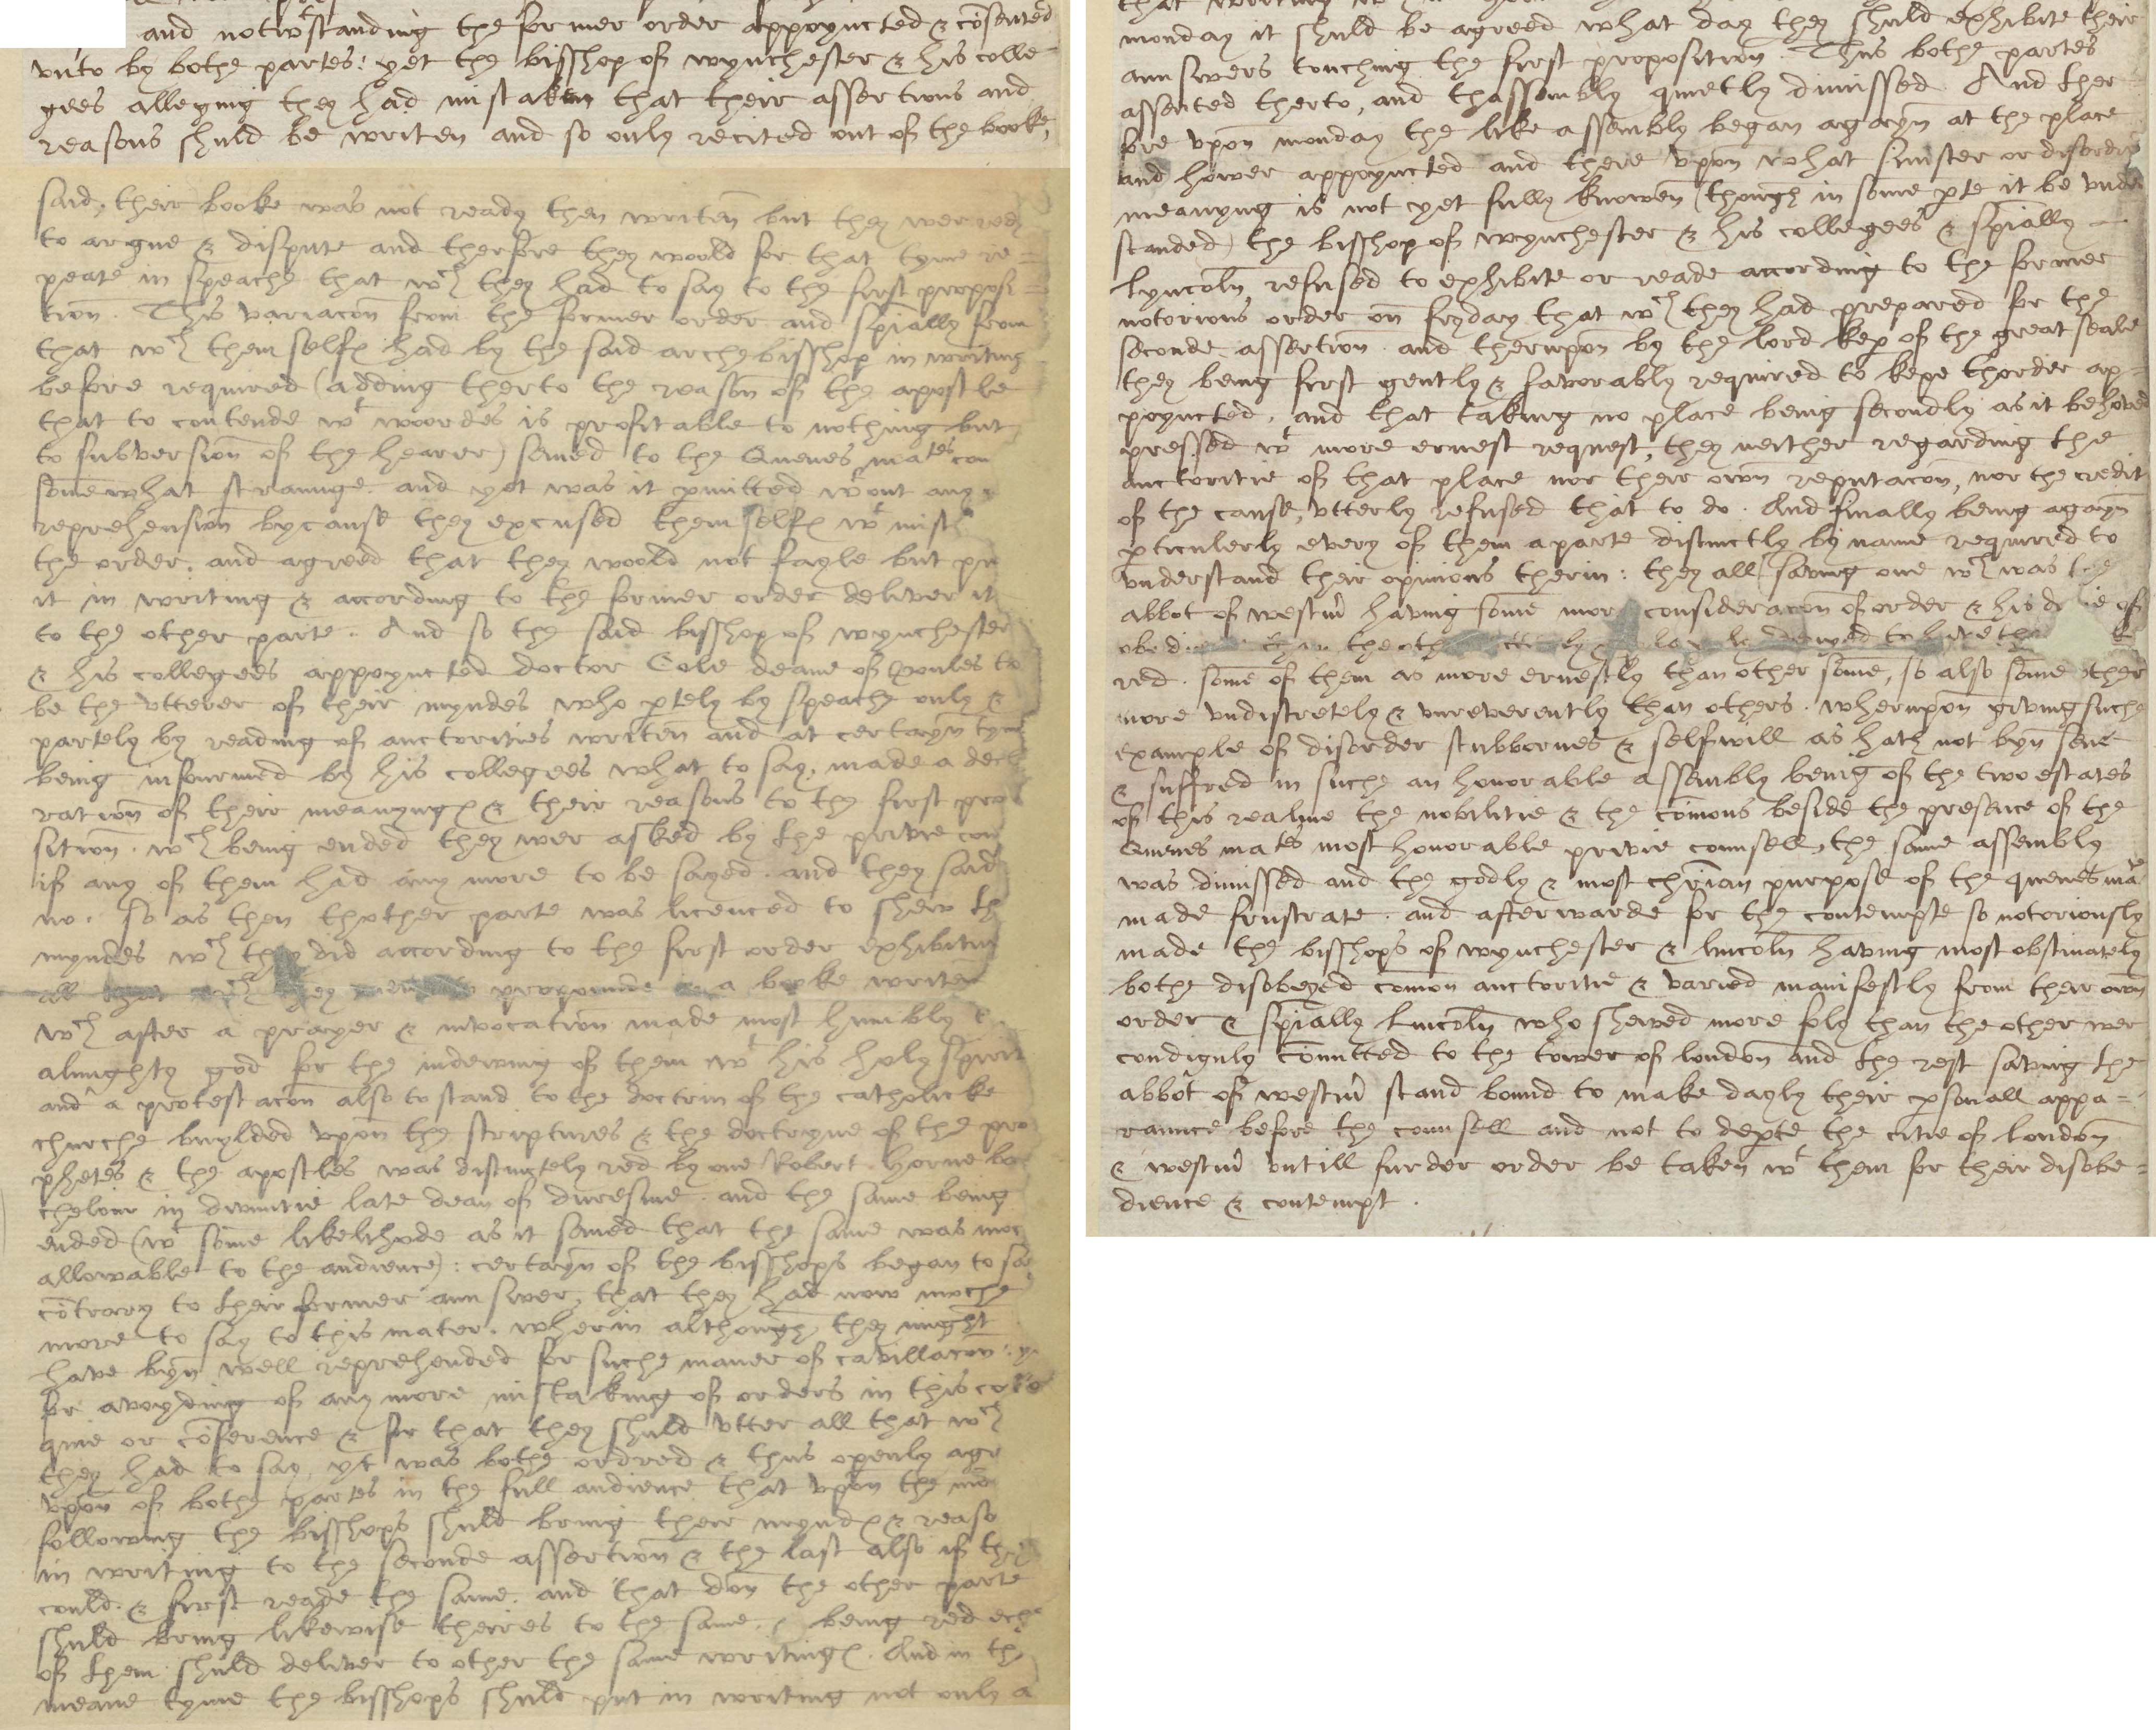 and notwtstanding the former order appoyncted & cōsented
vnto by bothe partes: yet the bisshop of wynchester & his colle
gees alleging they had mistaken that their assertions and
reasons shuld be writen and so only recited out of the booke,
said, their booke was not ready then writen but they wer redy
to argue & dispute and therfore they would for that tyme re=
peate in speache that wch they had to say to the first proposi=
tion. This variacōn from the former order and spially from
that wch themselfs had by the said archebisshop in writing
before required (adding therto the reason of the apostle
that to contende wt woordes is profitable to nothing but
to subversion of the hearer) semed to the Quenes mates con
somewhat straunge. and yet was it pmitted wtout any
reprehension bycause they excused themselfs wt mist
the order, and agreed that they woold not fayle but pu
it in writing & according to the former order deliver it
to the other parte. And so the said bisshop of wynchester
& his collegees appoyncted doctor Cole deane of Poules to
be the vtterer of their myndes who ptely by speache only &
partely by reading of auctorities writen and at certayn tyme
being infourmed by his collegees what to say, made a decl
ration of their meanyngs & their reasons to the first pro
sition. wch being ended they wer asked by the privie con
if any of them had any more to be sayed. and they said
no. so as then thother parte was licenced to shew th
myndes wch they did according to the first order exhibitin
all that wch they propounde a booke writen
wch after a prayer & invocation made most humbly
almighty god for the indewing of them wt his holy spirit
and a protestacōn also to stand to the doctrin of the catholicke
churche buylded vpon the scriptures & the doctryne of the pro
phetes & the apostles was distinctely red by one Robert Horne ba
chelour in divinitie late dean of duresme. and the same being
ended (wt some likelihode as it semed that the same was moc
allowable to the audience): certayn of the bisshops began to sa
cōtrary to their former aunswer, that they had now moche
more to say to this mater. wherin although they might
have byn well reprehended for suche maner of cavillacōn:
for avoyding of any more mistaking of orders in this collo
quie or cōference & for that they shuld vtter all that wch
they had to say, yt was bothe ordred & thus openly agr
vpon of bothe partes in the full audience that vpon the mō
following the bisshops shuld bring their mynds & reaso
in writing to the seconde assertion & the last also if they
could. & first reade the same. and that don the other parte
shuld bring likewise theires to the same. being red eche
of them shuld deliver to other the same writings. And in the
meane tyme the bisshops shuld put in writing not only a
monday it shuld be agreed what day they shuld exhibite their
aunswers touching the first proposition. Thus bothe partes
assented therto, and thassembly quietly dimissed. And ther
fore vpon monday the like assembly began agayn at the place
and hower appoyncted and there vpon what sinister or disordr
meanyng is not yet fully knowen (though in some pte it be vnder
standed) the bisshop of wynchester & his collegees & spially
Lyncoln refused to exhibite or reade according to the former
notorious order on fryday that wch they had prepared for the
seconde assertion. and therupon by the lord kep of the great seale
they being first gently & favorably required to kepe thorder ap=
poyncted, and that taking no place being secondly as it behoved
pressed wt more ernest request, they neither regarding the
auctoritie of that place nor their own reputacōn, nor the credit
of the cause, vtterly refused that to do. And finally being agayn
pticulerly every of them aparte distinctly by name required to
vnderstand their opinions therin: they all (saving one wch was the
abbot of westm̄ having some more consideracōn of order & his of
obedience than the denyed to have
red. some of them as more ernestly than other some, so also some other
more vndiscretely & vnreverently than others. wherupon giving suche
example of disorder stubbornes & selfwill as hath not byn sene
& suffred in suche an honorable assembly being of the two estates
of this realme the nobilitie & the cōmons beside the presence of the
Quenes mates most honorable privie counsell, the same assembly
was dimissed and the godly & most chr̄ian purpose of the quenes mate
made frustrate. and afterwarde for the contempte so notoriously
made the bisshops of wynchester & lincoln having most obstinately
bothe disobeyed cōmon auctoritie & varied manifestly from their own
order & spially Lincoln who shewed more foly than the other wer
condignly cōmitted to the tower of london and the rest saving the
abbot of westm̄ stand bound to make dayly their psonall appa=
raunce before the counsell and not to depte the citie of london
& westm̄ vntill furder order be taken wt them for their disobe=
dience & contempt.